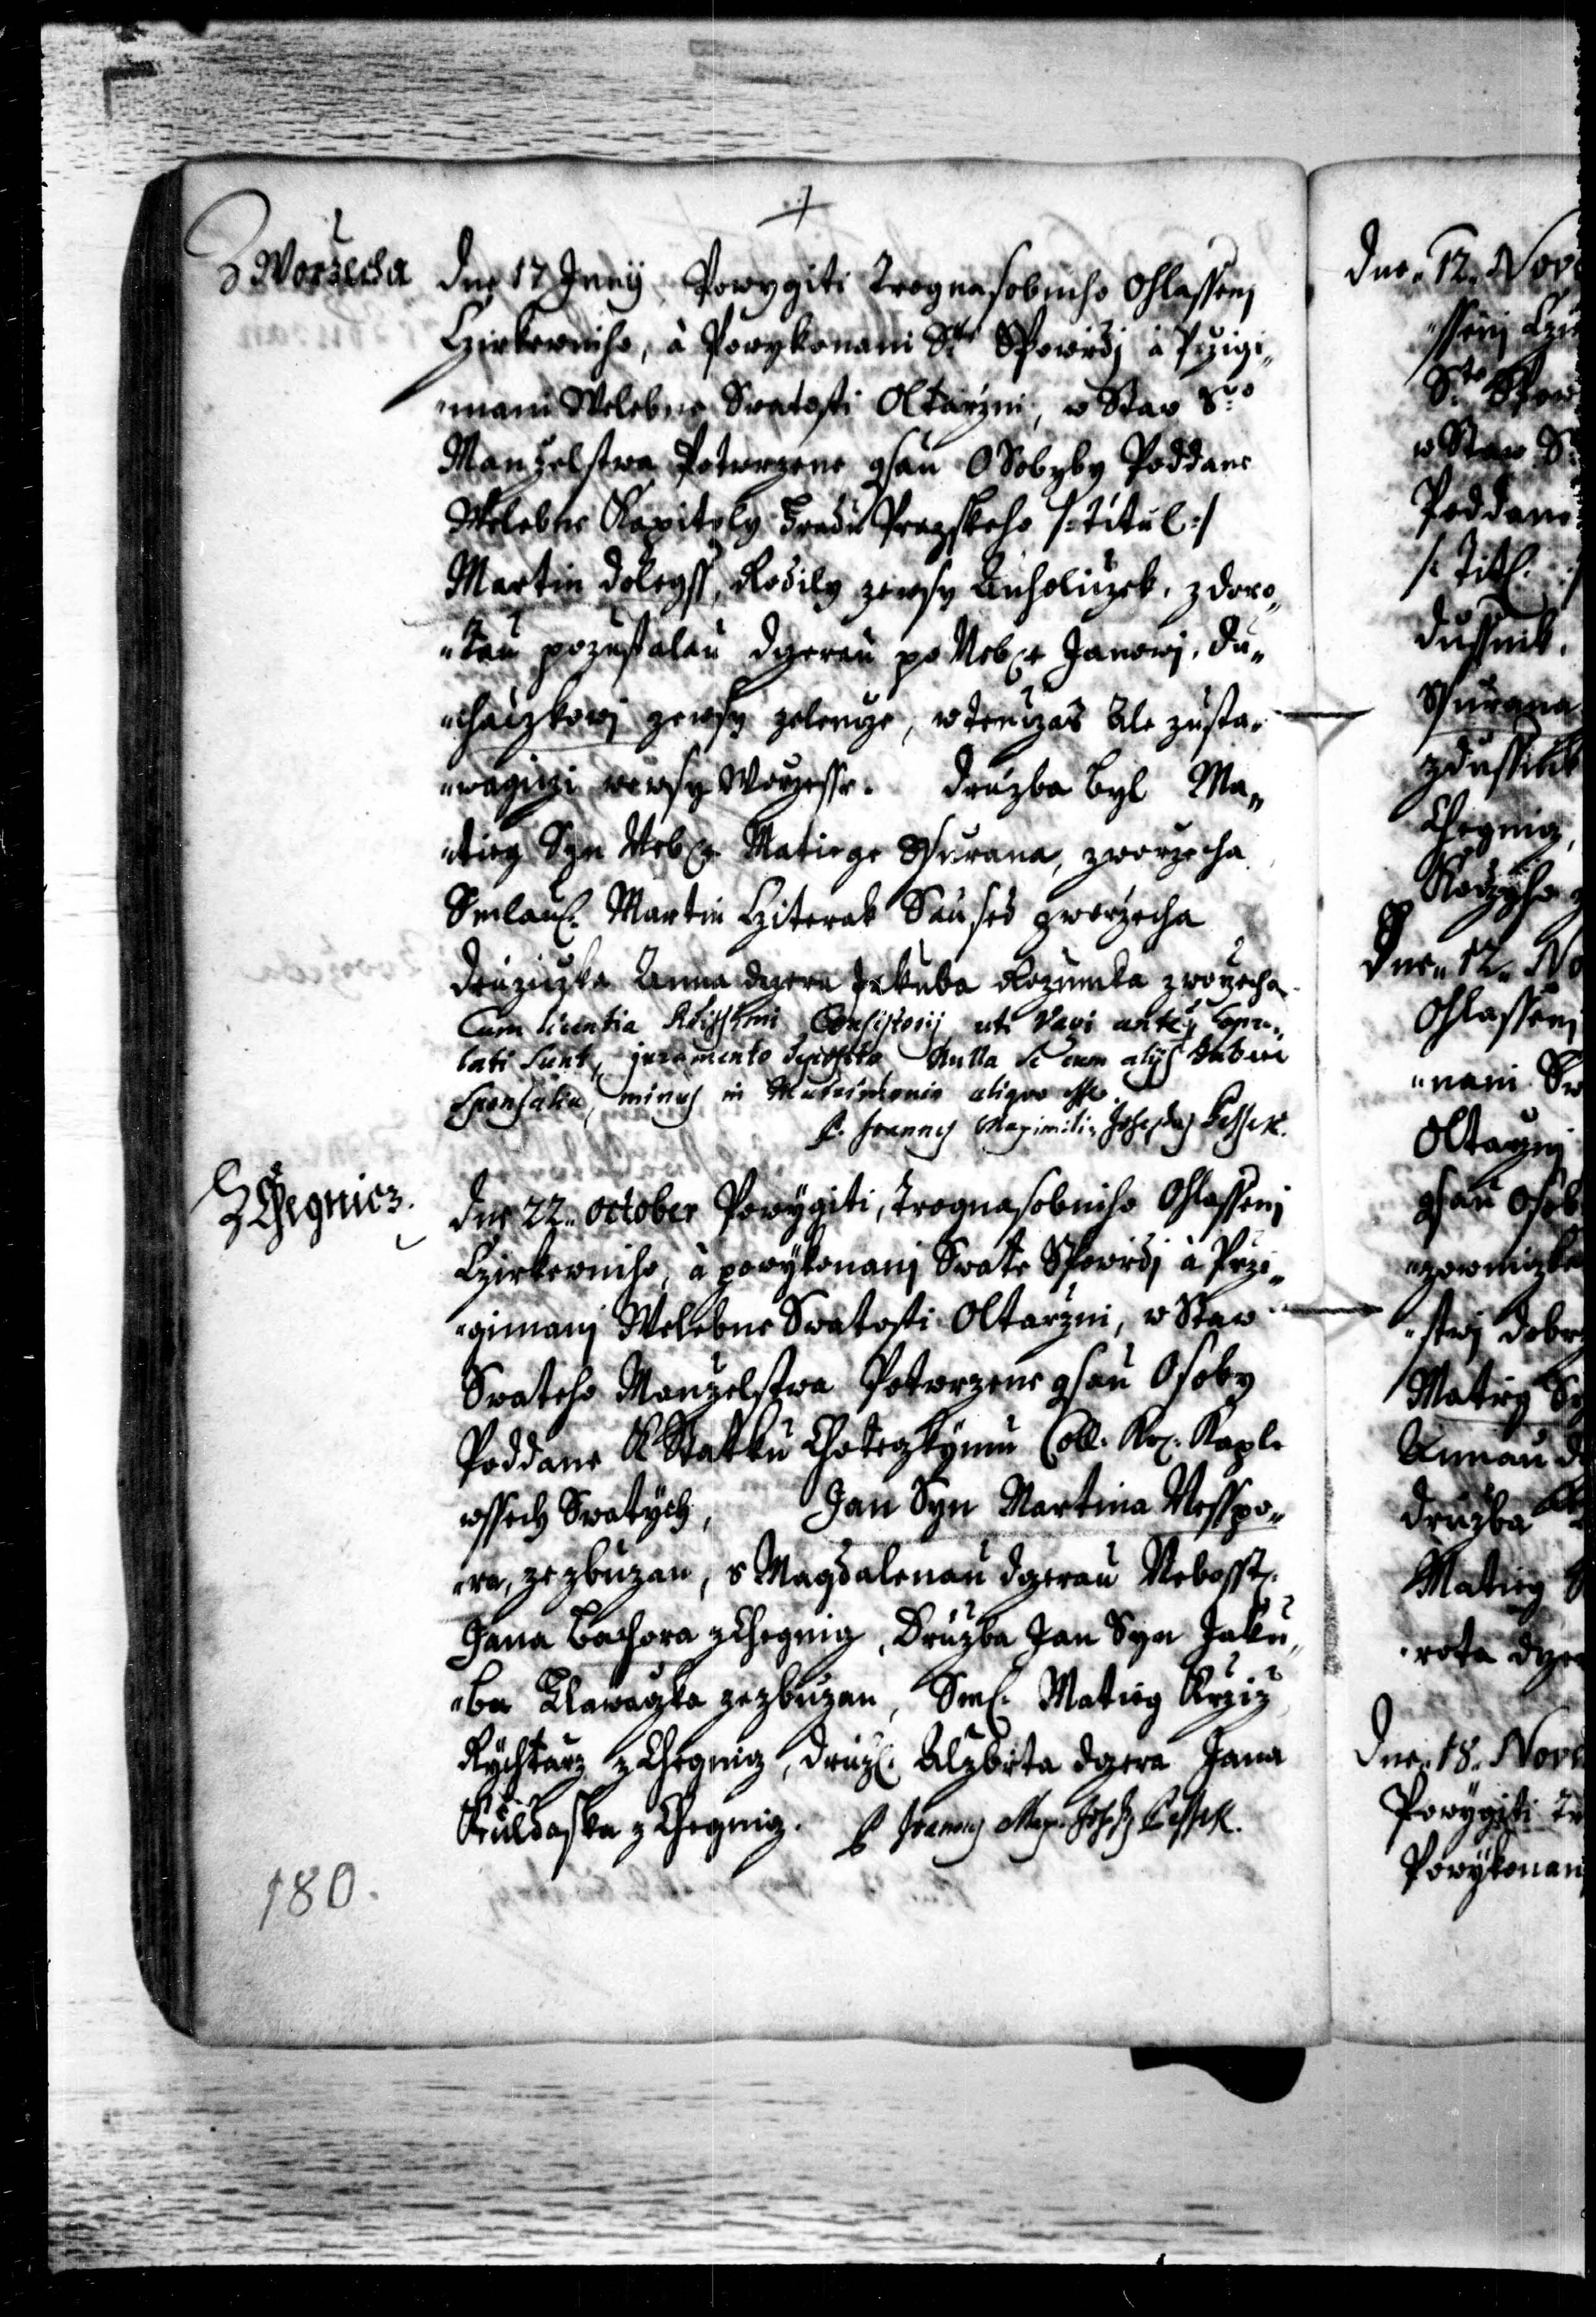 Z Worzecha
Dne 17 Junij Powygiti Trognasobniho Ohlassenj
Czirkewniho, à Powykonani Ste Spowidj à Przigi„
„mani Welebne Swatosti Oltarzni, w Staw So
Manzelstwa Potwrzene gsau Osobyby Poddane
Welebne Kapitoly Hradu Prazskeho /: Titul :/
Martin Doleyss, Rodily zewsy Auholiczek, z Doro„
„tau pozustalau dczerau po Neb. Janowj. Du„
„chaczkowj zewsy zelencze, w tenczas Ale zusta„
„wagiczi wewsy Worzesse. Druzba Byl Ma„
„tieg Syn Neb. Matiege Burana, zworzecha
Smlau. Martin Cziterak Saused zworzecha
Druziczka Anna dczera Jakuba Rozumka zworzecha
Cum licentia Consistorij uti Vagi antea copu„
lati sunt, juramento deposito Nulla se cum alijs habere
Sponsalia, minus in Matrimonio aliquo esse.
P. Joannes Maximili. Josephus Lessek.
Z Chegnicz.
Dne 22. October Powygiti, Trognasobniho Ohlassenj
Czirkewniho, à powykonanj Swate Spowidj à Przi„
„gimanj Welebne Swatosti Oltarzni, w Staw
Swateho Manzelstwa Potwrzene gsau Osoby
Poddane K Statku Choteczkymu Coll. Kr. Kaple
wssech Swatych, Jan Syn Martina Nesspo„
„ra, ze zbuzan, s Magdalenau dczerau Nebosst.
Jana Bachora z Chegnicz, Druzba Jan Syn Jaku„
„ba Hlawaczka ze zbuzan, Sml. Matieg Krziz
Rychtarz z Chegnicz, druz. Alzbieta dczera Jana
Kuldaska z Chegnicz. P. Joannes Max. Jos. Lessek.
180.
Dne. 12. Nov
ssenj Czi
Ste Spow
w Staw S
Poddane
/: Titl. :/
Dussnik.
Burana
z Dussnik
Chegnicz,
Dne. 12. No
Ohlassenj
„nani Sw
Oltarznj
gsau Osob
„stwj Dobr
Matieg Sy
Annau d
Druzba
Matieg
„rota dcze
Dne. 18. Nov
Powygiti Tr
Powykonan